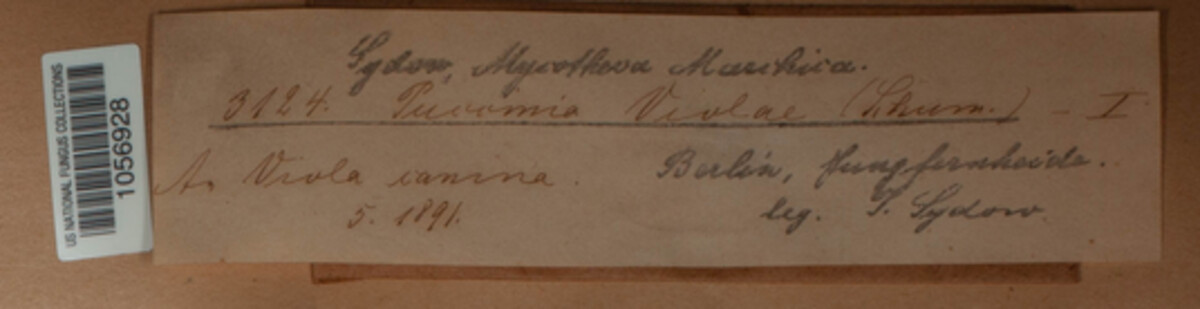 US NATIONAL FUNGUS COLLECTIONS
1056928
Sydow, Mycotheca Marchica.
3124. Puccinia Violae (Schum.) - I
An Viola canina.
5. 1891.
Berlin, Jungfernheide.
leg. P. Sydow.